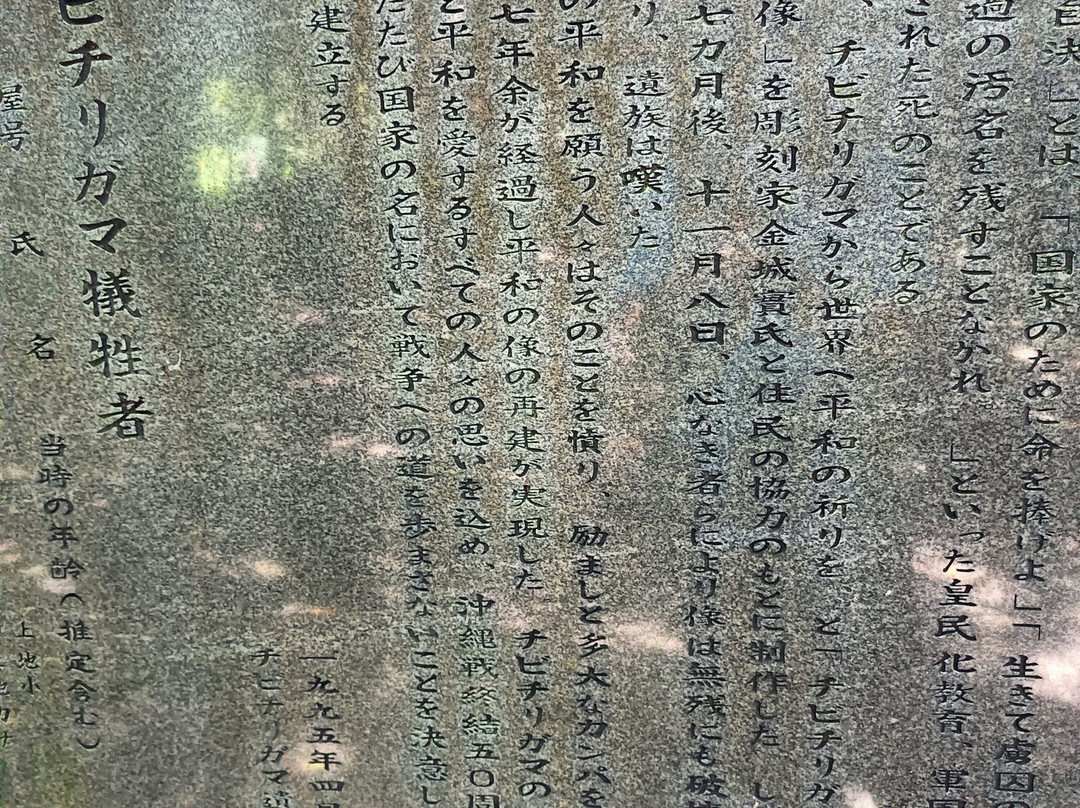 自決」とは「国家のために命を捧げよ」「生きて虜囚
過の汚名を残すことなかれ 」といった皇民化教育、軍
された死のことである
、チビチリガマから世界へ平和の祈りを、と「チビチリガ
像」を彫刻家金城實氏と住民の協力のもとに制作した し
七カ月後、十一月八日、心なき者らにより像は無残にも破
り、遺族は嘆いた
の平和を願う人々はそのことを憤り、励ましと多大なカンパを
七年余が経過し平和の像の再建が実現した チビチリガマの
と平和を愛するすべての人々の思いを込め、沖縄戦終結五〇周
たたび国家の名において戦争への道を歩まさないことを決意し
建立する
一九九五年四月
チビチリガマ遺
ビチリガマ犠牲者
屋号
氏 名
当時の年齢(推定含む)
上地小